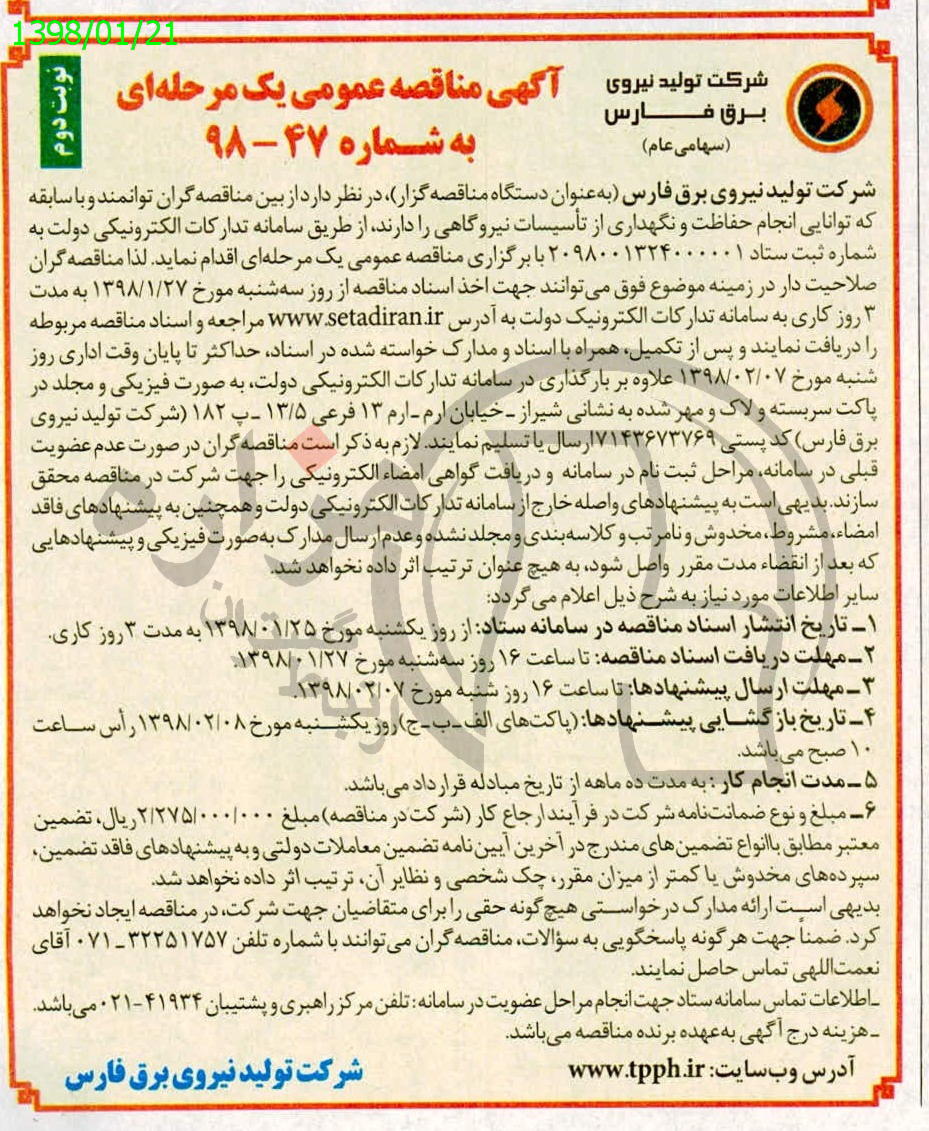 1398/01/21
شرکت تولید نیروی
برق فـــــارس
(سهامی عام)
آگهی مناقصه عمومی یک مرحله‌ای
به شـــماره ۴۷ – ۹۸
نوبت دوم
شرکت تولید نیروی برق فارس (به‌عنوان دستگاه مناقصه‌گزار)، در نظر دارد از بین مناقصه‌گران توانمند و با سابقه
که توانایی انجام حفاظت و نگهداری از تأسیسات نیروگاهی را دارند، از طریق سامانه تدارکات الکترونیکی دولت به
شماره ثبت ستاد ۲۰۹۸۰۰۱۳۲۴۰۰۰۰۰۱ با برگزاری مناقصه عمومی یک مرحله‌ای اقدام نماید. لذا مناقصه‌گران
صلاحیت دار در زمینه موضوع فوق می‌توانند جهت اخذ اسناد مناقصه از روز سه‌شنبه مورخ ۱۳۹۸/۱/۲۷ به مدت
۳ روز کاری به سامانه تدارکات الکترونیک دولت به آدرس www.setadiran.ir مراجعه و اسناد مناقصه مربوطه
را دریافت نمایند و پس از تکمیل، همراه با اسناد و مدارک خواسته شده در اسناد، حداکثر تا پایان وقت اداری روز
شنبه مورخ ۱۳۹۸/۰۲/۰۷ علاوه بر بارگذاری در سامانه تدارکات الکترونیکی دولت، به صورت فیزیکی و مجلد در
پاکت سربسته و لاک و مهر شده به نشانی شیراز ـ خیابان ارم ـ ارم ۱۳ فرعی ۱۳/۵ ـ پ ۱۸۲ (شرکت تولید نیروی
برق فارس) کد پستی ۷۱۴۳۶۷۳۷۶۹ ارسال یا تسلیم نمایند. لازم به ذکر است مناقصه‌گران در صورت عدم عضویت
قبلی در سامانه، مراحل ثبت نام در سامانه و دریافت گواهی امضاء الکترونیکی را جهت شرکت در مناقصه محقق
سازند. بدیهی است به پیشنهادهای واصله خارج از سامانه تدارکات الکترونیکی دولت و همچنین به پیشنهادهای فاقد
امضاء، مشروط، مخدوش و نامرتب و کلاسه‌بندی و مجلد نشده و عدم ارسال مدارک به‌صورت فیزیکی و پیشنهادهایی
که بعد از انقضاء مدت مقرر واصل شود، به هیچ عنوان ترتیب اثر داده نخواهد شد.
سایر اطلاعات مورد نیاز به شرح ذیل اعلام می‌گردد:
۱ـ تاریخ انتشار اسناد مناقصه در سامانه ستاد: از روز یکشنبه مورخ ۱۳۹۸/۰۱/۲۵ به مدت ۳ روز کاری.
۲ـ مهلت دریافت اسناد مناقصه: تا ساعت ۱۶ روز سه‌شنبه مورخ ۱۳۹۸/۰۱/۲۷.
۳ـ مهلت ارسال پیشنهادها: تا ساعت ۱۶ روز شنبه مورخ ۱۳۹۸/۰۲/۰۷.
۴ـ تاریخ بازگشـایی پیشـنهادها: (پاکت‌های الف ـ ب ـ ج) روز یکشـنبه مورخ ۱۳۹۸/۰۲/۰۸ رأس ســاعت
۱۰ صبح می‌باشد.
۵ـ مدت انجام کار: به مدت ده ماهه از تاریخ مبادله قرارداد می‌باشد.
۶ـ مبلغ و نوع ضمانت‌نامه شرکت در فرآیند ارجاع کار (شرکت در مناقصه) مبلغ ۲/۲۷۵/۰۰۰/۰۰۰ ریال، تضمین
معتبر مطابق باانواع تضمین‌های مندرج در آخرین آیین‌نامه تضمین معاملات دولتی و به پیشنهادهای فاقد تضمین،
سپرده‌های مخدوش یا کمتر از میزان مقرر، چک شخصی و نظایر آن، ترتیب اثر داده نخواهد شد.
بدیهی اســت ارائه مدارک درخواســتی هیچ‌گونه حقی را برای متقاضیان جهت شرکت، در مناقصه ایجاد نخواهد
کرد. ضمناً جهت هرگونه پاسخگویی به سؤالات، مناقصه‌گران می‌توانند با شماره تلفن ۳۲۲۵۱۷۵۷ ـ ۰۷۱ آقای
نعمت‌اللهی تماس حاصل نمایند.
ـ اطلاعات تماس سامانه ستاد جهت انجام مراحل عضویت در سامانه: تلفن مرکز راهبری و پشتیبان ۴۱۹۳۴-۰۲۱ می‌باشد.
ـ هزینه درج آگهی به‌عهده برنده مناقصه می‌باشد.
آدرس وب‌سایت: www.tpph.ir
شرکت تولید نیروی برق فارس